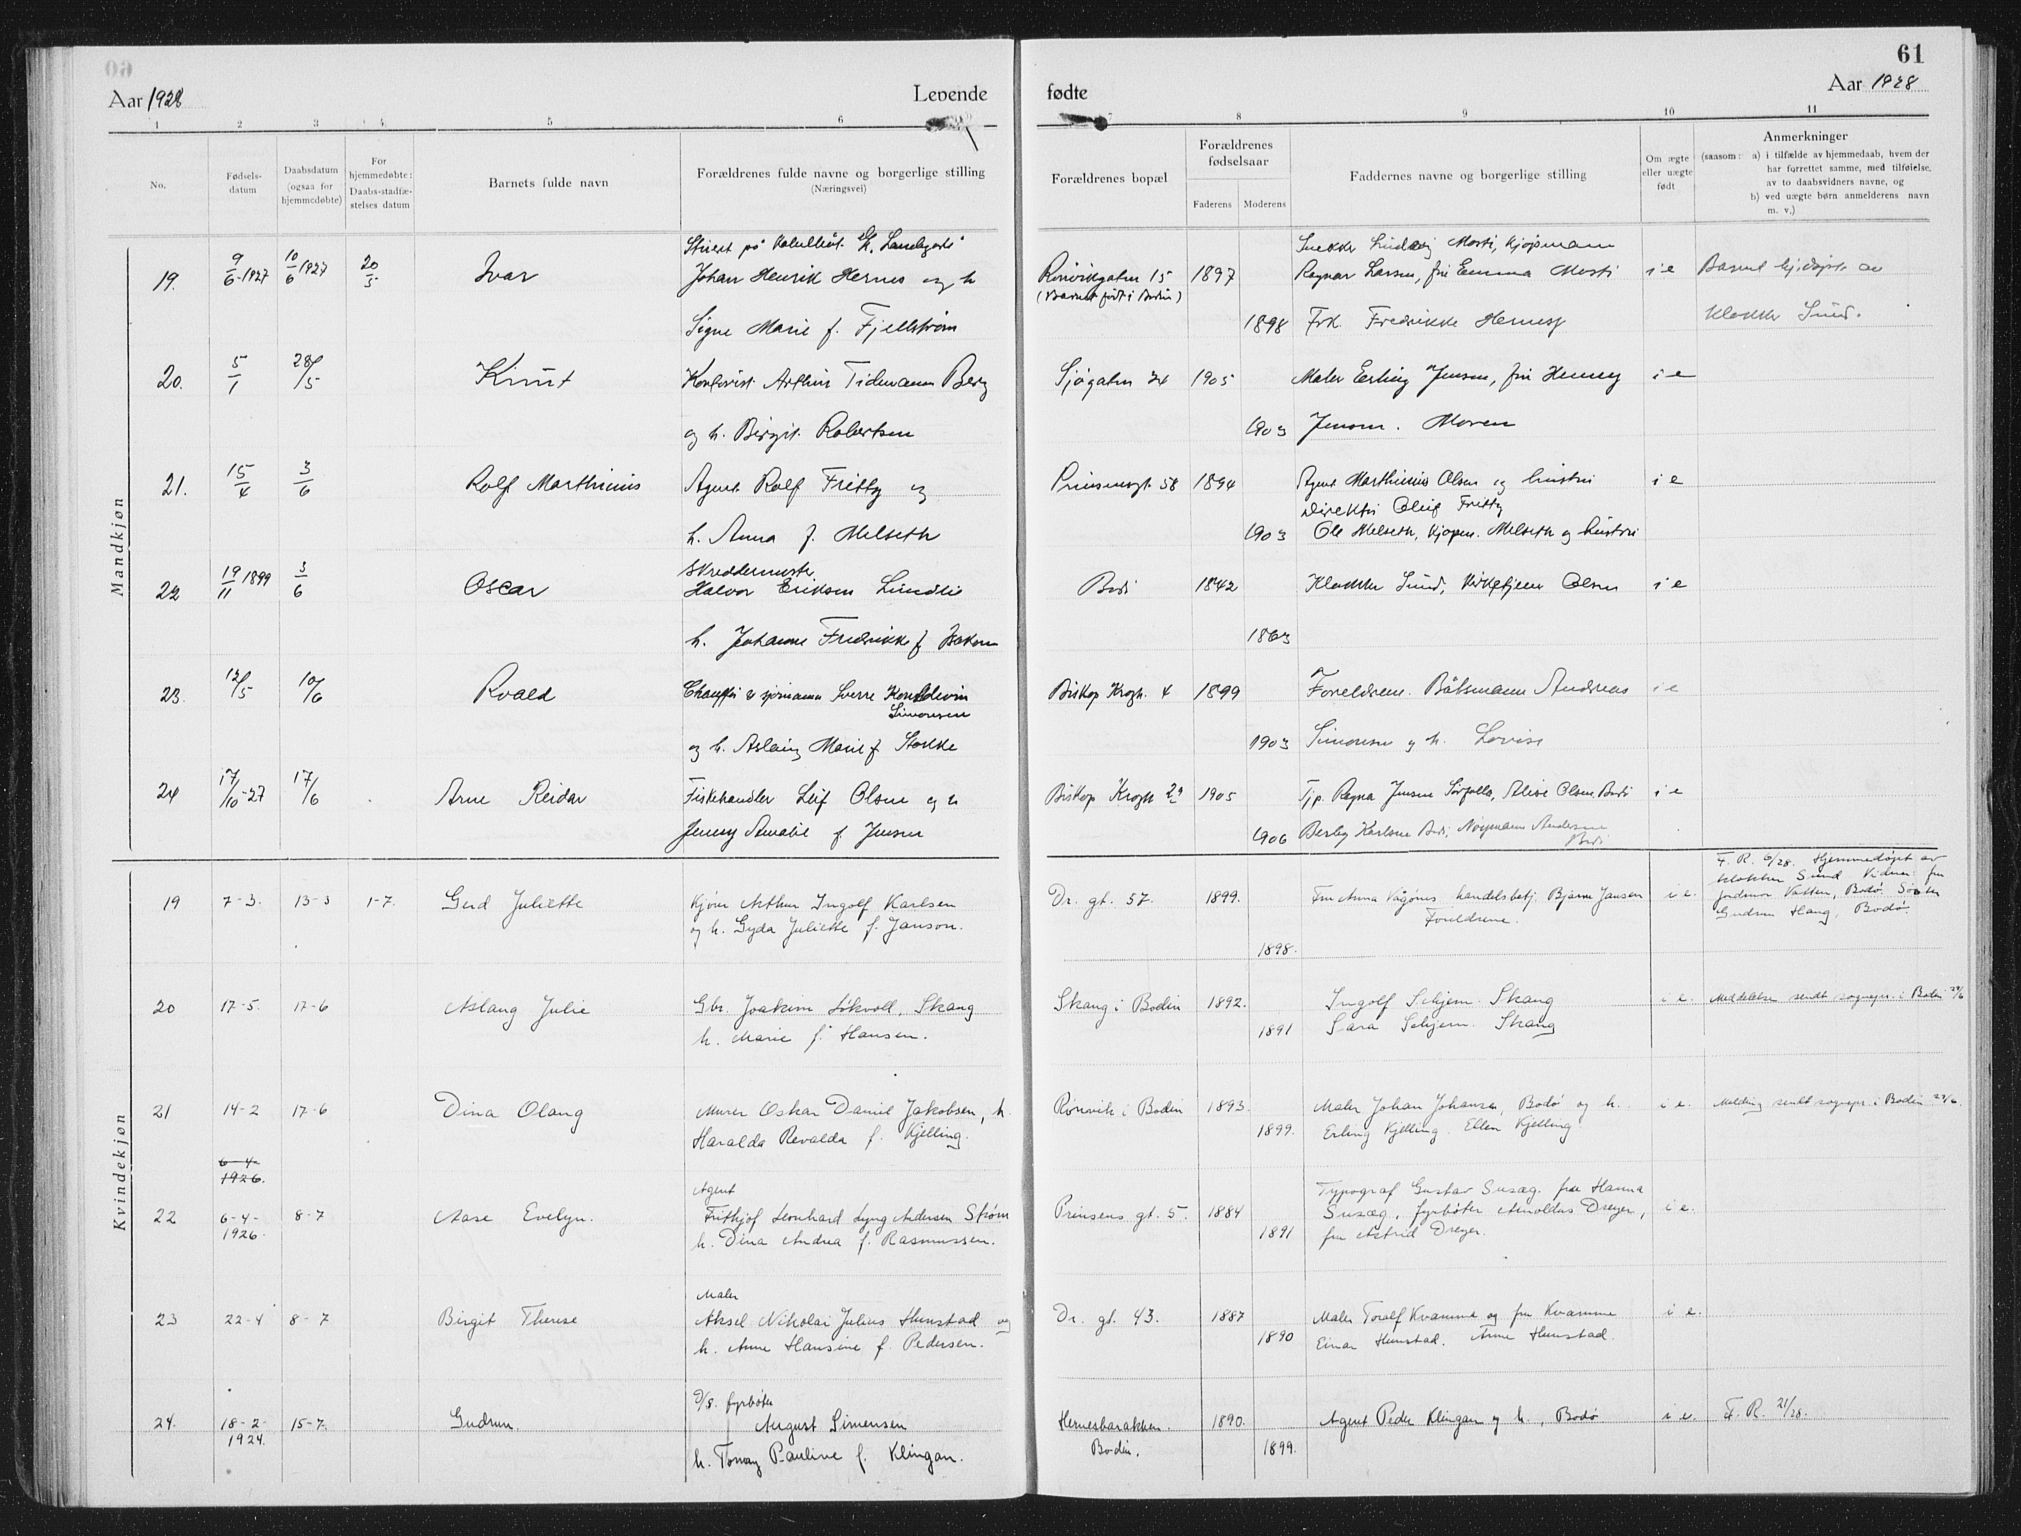 60
Aar 1928
Levende
1 2 3 4 5 6
No.
Fødsels-
datum
Daabsdatum
(ogsaa for
hjemmedøbte)
For
hjemmedøbte:
Daabs-stadfæ-
stelses datum
Barnets fulde navn
Forældrenes fulde navne og borgerlige stilling
(Næringsvei)
Mandkjøn
19. 9/6-1927 10/6 1927 20/5 Ivar
Johan Henrik Hernes og h
Signe Marie f. Fjellstrøm
20. 5/1 28/5 Knut
Arthur Tidemann Berg
og h. Birgit Robertsen
21. 15/4 3/6 Rolf Marthinius
Agent Rolf Fritty og
h. Anna f. Melseth
22 19/11 1899 3/6 Oscar
Skreddermester
Halvor Eriksen Lundli
h. Johanne Fredrikke f.
23. 12/5 10/6 Roald
Sverre
Simonsen
og h. Aslaug Marie f. Stokke
24 17/10-27 17/6 Arne Reidar
Fiskehandler Leif Olsen og h
Jenny Amalie f. Jensen
Kvindekjøn
19 7-3. 13-3 1-7. Gerd Juliette
Kjører Arthur Ingolf Karlsen
og h. Gyda Juliette f. Janson.
20 17-5. 17-6 Aslaug Julie
Gbr. Joakim Løkvold, Skaug
h. Marie f. Hansen.
21 14-2 17-6 Dina Olaug
Murer Oskar Daniel Jakobsen, h.
Haralda Revalda f. Kjelling.
6-4-
1926.
22 6-4-
1926. 8-7 Aase Evelyn.
Agent
Frithjof Leonhard Lyng Andersen Strøm
h. Dina Andrea f. Rasmussen.
23 22-4 8-7 Birgit Therese
Maler
Aksel Nikolai Julius Hunstad og
h. Anne Hansine f. Pedersen.
24. 18-2-
1924. 15-7. Gudrun.
D/S. fyrbøter
August Simensen
h. Tonny Pauline f. Klingan.
61
fødte
Aar 1928
7 8 9 10 11
Forældrenes bopæl
Forældrenes
fødselsaar
Faderens Moderens
Faddernes navne og borgerlige stilling
Om ægte
eller uægte
født
Anmerkninger
(saasom: a) i tilfælde av hjemmedaab, hvem der
har forrettet samme, med tilføielse
av to daabsvidners navne, og
b) ved uægte børn anmelderens navn
m. v.)
Rønvikgaten 15 1897
(Barnet født i Bodin)
1898
Snekker Ludvig Mosti, kjøpmann
Ragnar Larsen, fru Emma Mosti
Frk. Fredrikke Hernes
i e
Barnet hj.døpt av
klokker Sund.
Sjøgaten 24 1905
1903
Maler Erling Jensen, fru Henny
Jenson. Moren
i e
Prinsensgt. 58 1894
1903
Agent Marthinius Olsen og hustru
Direktør Oluf Fritty
Ole Melseth, kjøpm. Melseth og hustru
i e
Bodø 1842
1863
Klokker Sund, kirketjener Olsen
i e
Biskop Kroghs. 4 1899
1903
Foreldrene. Båtsmann Andreas
Simonsen og h. Lovise
i e
Biskop Krogh 29 1905
1906
Tjp. Ragna Jensen Sørfolla, Alise Olsen Bodø
Karlsen Bodø, Andersen
Bodø
i e
Dr. gt. 57. 1899.
1898.
Fru Anna Vågønes, handelsbetj. Bjarne Jansen
Foreldrene.
i e.
F. R. 6/28. Hjemmedøpt av
klokker Sund. Vidner: fru
jordmor Vatten, Bodø. Søster
Gudrun Haug, Bodø.
Skaug i Bodin 1892.
1891
Ingolf Schjem. Skaug
Sara Schjem. Skaug
i e.
Meddelelse sendt sognepr. i Bodin 29/6
Rønvik i Bodin 1893.
1899.
Maler Johan Johansen, Bodø og h.
Erling Kjelling. Ellen Kjelling
i e.
Melding sendt sognepr. i Bodin 29/6.
Prinsens gt. 5. 1884
1891
Typograf Gustav Susæg. fru Hanna
Susæg, fyrbøter Arnoldus Dreyer,
fru Astrid Dreyer.
i e.
Dr. gt. 43. 1887
1890
Maler Toralf Kvamme og fru Kvamme
Einar Hunstad. Arne Hunstad.
i e.
Hernesbarakken.
Bodin. 1890.
1899.
Agent Peder Klingan og h., Bodø
i e.
F. R. 21/28.